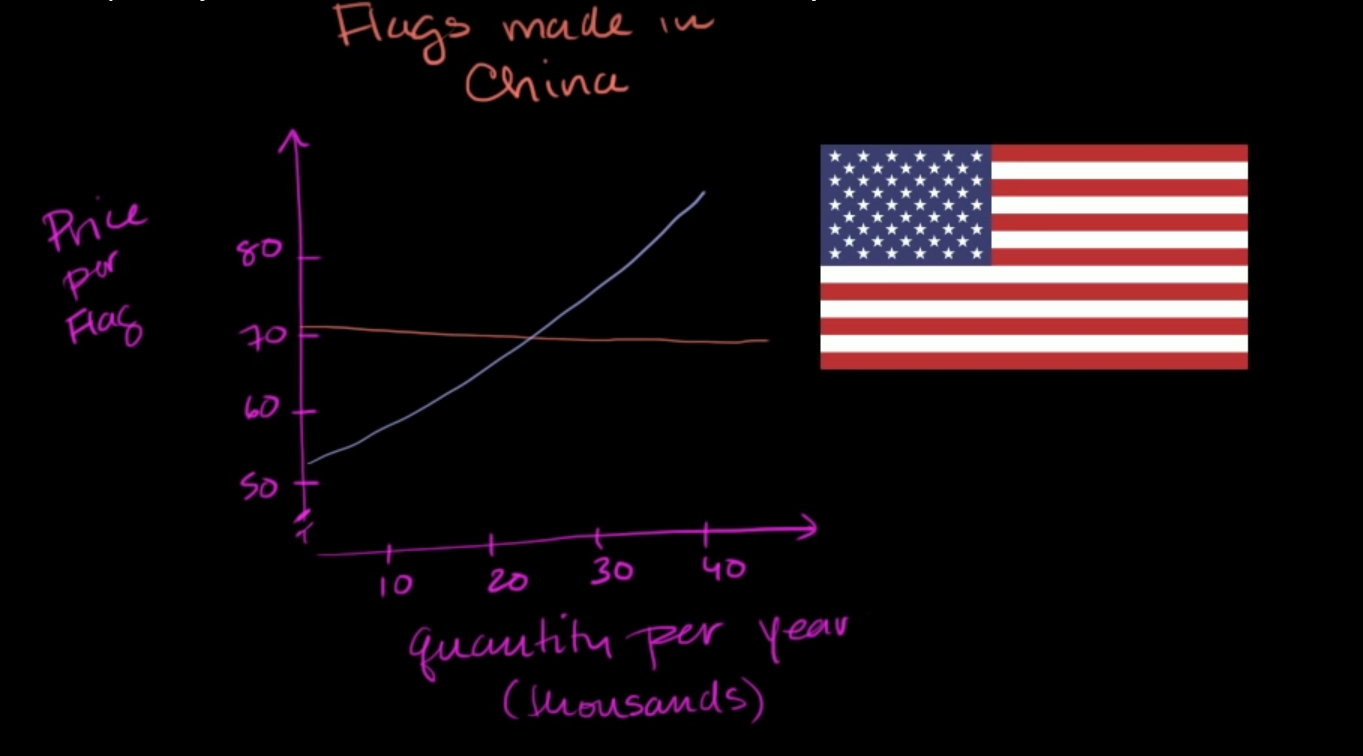 Flags made in
China
Price
per
Flag
80
70
60
50
10 20 30 40
quantity per year
(thousands)